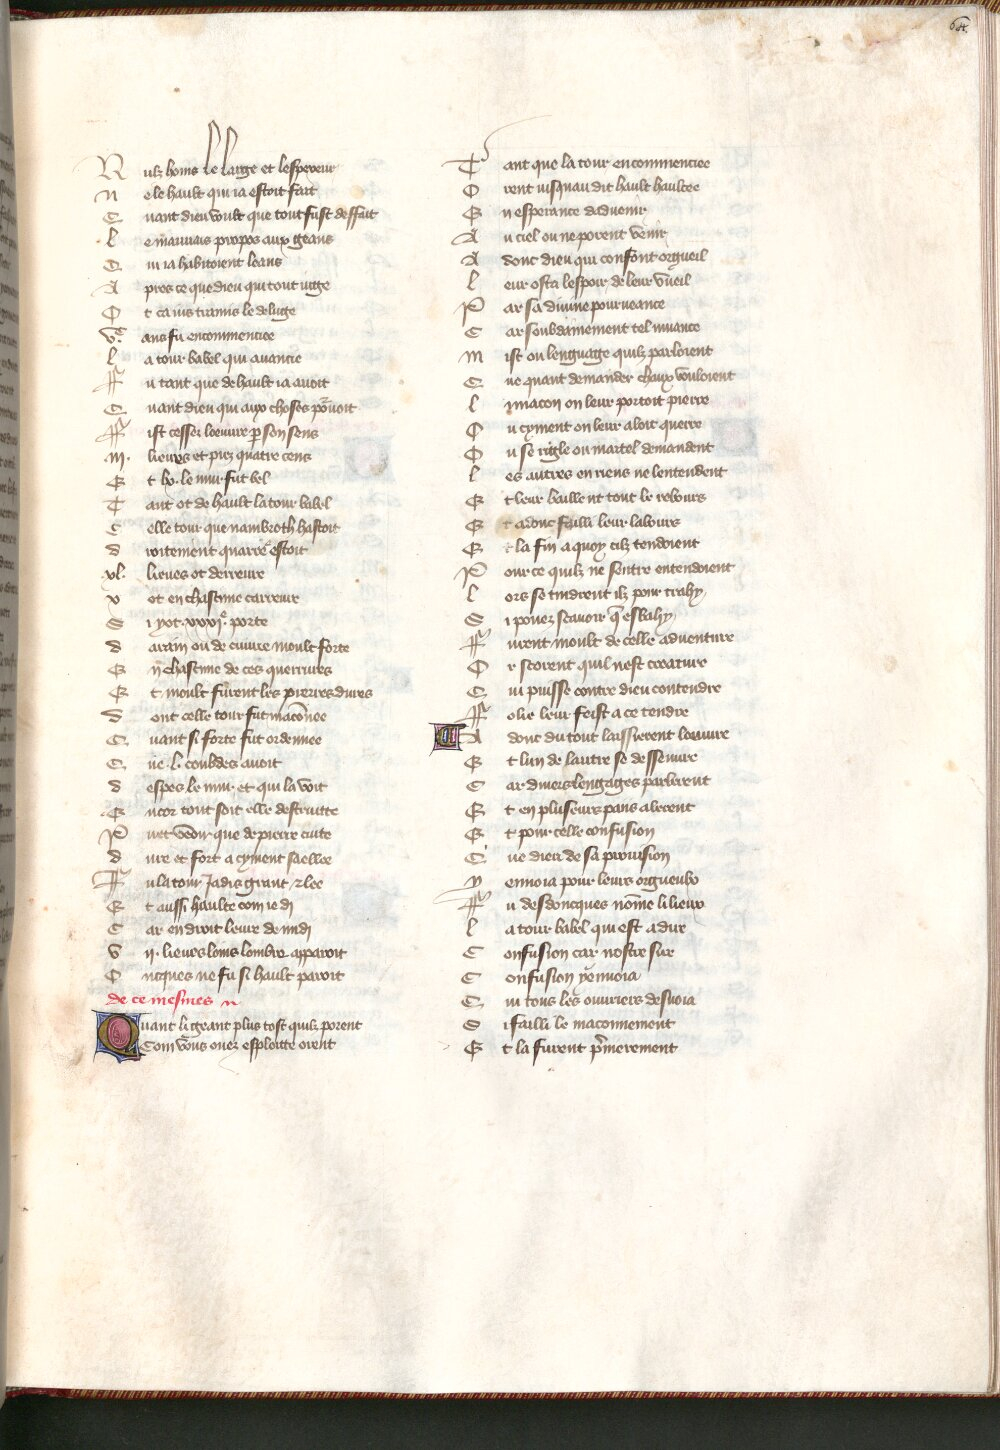 64
Nulz homs le large et lespesseur
Ne le hault qui ia estoit fait
Quant dieu voult que tout fust deffait
Le mauuais propos aux geans
Qui ia habitoient leans
Apres ce que dieu qui tout iuge
Ot ca ius tramis le deluge
ans fu encommencie
La tour babel qui auancie
Fu tant que de hault ia auoit
Quant dieu qui aux choses pouoit
Fist cesser loeuure p son sens
.m. lieues et puis quatre cens
Et lx. le mur fut bel
Tant ot de hault la tour babel
Celle tour que nambroth hastoit
Droitement quarree estoit
.vl. lieues ot derreure
V ot en chascune carreure
Si y ot .xxvi. porte
Darain ou de cuiure moult forte
En chascune de ces querrures
Et moult furent les pierres dures
Dont celle tour fut maconnee
Quant si forte fut ordennee
Que .l. coubdes auoit
Despes le mur et qui la voit
Encor tout soit elle destruitte
Puet veoir que de pierre cuite
Dure et fort a cyment saellee
Fu la tour Jadis grant z lee
Et aussi haulte com ie di
Car en droit leure de midi
Vii. lieues loins lombre apparoit
Oncques ne fu si hault paroit
de ce mesmes
Quant li geant plus tost quilz porent
Com vous ouez esploitte orent
Tant que la tour encommenciee
Orent iusquau dit hault haulcee
En esperance daduenir
Au ciel ou ne porent venir
Adonc dieu qui confont orgueil
Leur osta lespoir de leur vueil
Par sa diuine pourueance
Car soubdainement tel muance
Mist ou lenguage quilz parloient
Que quant demander chaux vouloient
Li macon on leur portoit pierre
Ou cyment on leur aloit querre
Ou se rigle ou martel demandent
Les autres en riens ne lentendent
Et leur baillent tout le rebours
Et adonc failli leur labours
Et la fin a quoy cilz tendoient
Pour ce quilz ne sentre entendoient
Lors se tindrent ilz pour trahy
Si pouez scauoir q esbahy
Furent moult de celle aduenture
Or scorent quil nest creature
Qui puisse contre dieu contendre
Folie leur feist a ce tendre
Adonc du tout laissierent loeuure
Et lun de lautre se dessenure
Car diuers lengages parlerent
Et en pluseurs pans alerent
Et pour celle confusion
Que dieu de sa prouision
Y enuoia pour leurs orgueulx
Fu desdoncques nome li lieux
La tour babel qui est a dire
Confusion car nostre sire
Confusion y enuoia
Qui tous les ouuriers desuoia
Si failli le maconnement
Et la furent pmierement